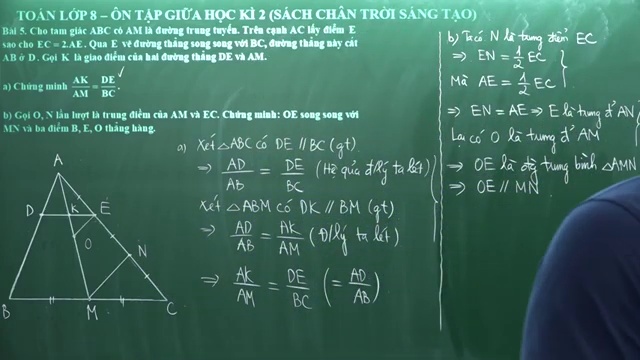 TOÁN LỚP 8 – ÔN TẬP GIỮA HỌC KÌ 2 (SÁCH CHÂN TRỜI SÁNG TẠO)
Bài 5. Cho tam giác ABC có AM là đường trung tuyến. Trên cạnh AC lấy điểm E
sao cho EC = 2.AE. Qua E vẽ đường thẳng song song với BC, đường thẳng này cắt
AB ở D. Gọi K là giao điểm của hai đường thẳng DE và AM.
a) Chứng minh AK/AM = DE/BC.
b) Gọi O, N lần lượt là trung điểm của AM và EC. Chứng minh: OE song song với
MN và ba điểm B, E, O thẳng hàng.
A
D
K
E
O
N
B
M
C
a) Xét △ABC có DE // BC (gt)
⇒ AD/AB = DE/BC (Hệ quả đ/lý ta lét)
Xét △ABM có DK // BM (gt)
⇒ AD/AB = AK/AM (Đ/lý ta lét)
⇒ AK/AM = DE/BC (= AD/AB)
b) Ta có N là trung điểm EC
⇒ EN = 1/2 EC
Mà AE = 1/2 EC
⇒ EN = AE ⇒ E là trung đ' AN
Lại có O là trung đ' AM
⇒ OE là đg trung bình △AMN
⇒ OE // MN